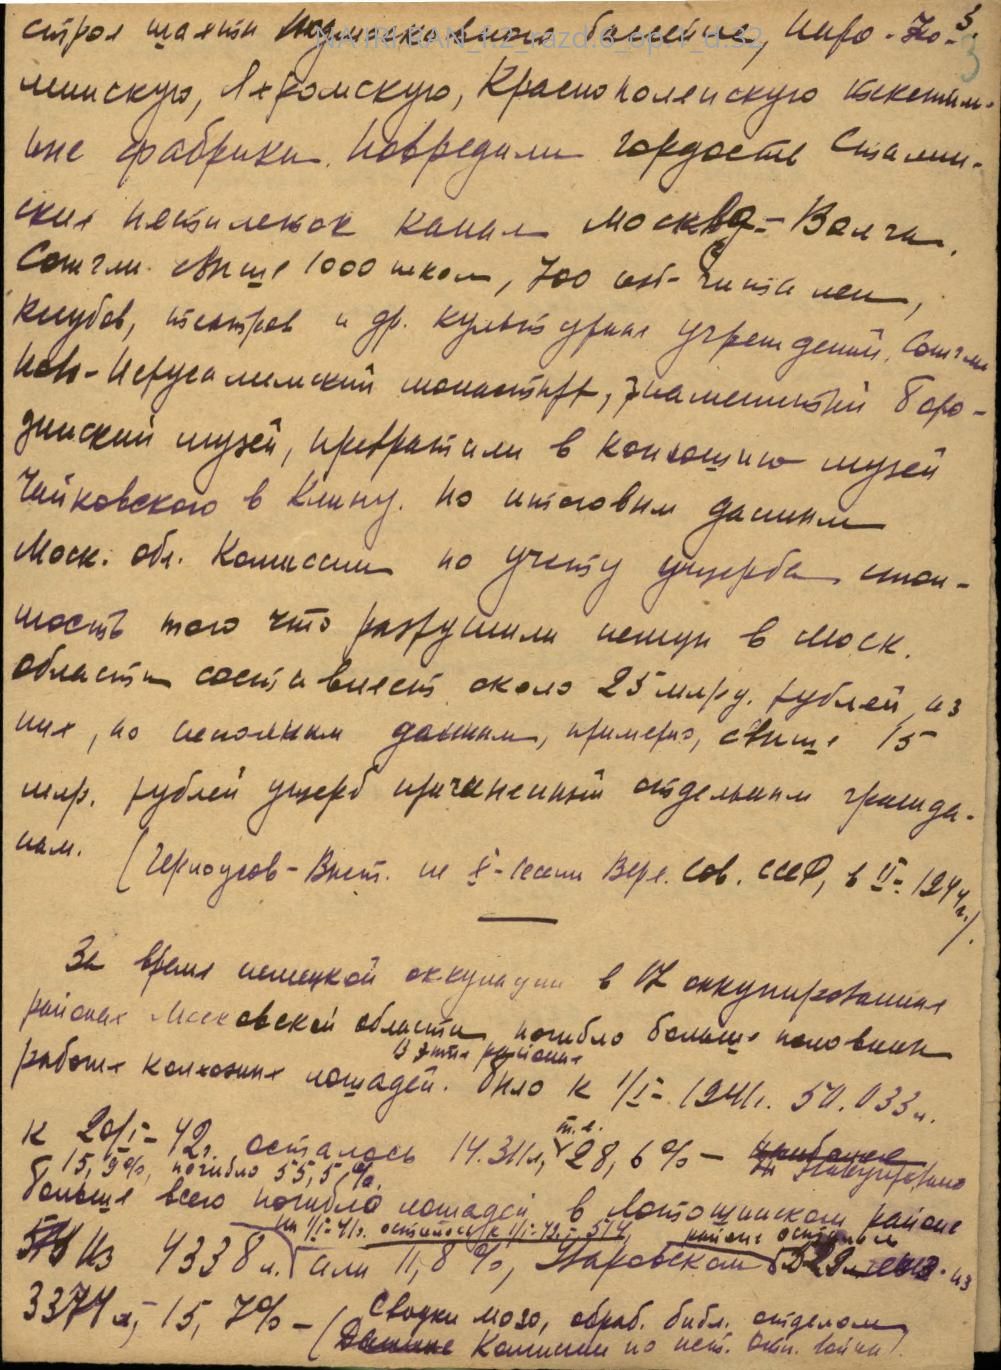 3
3
NA IRI RAN_f.2_razd.6_op.1_d.32
строя шахты Подмосковного бассейна, Наро-Фо-
минскую, Яхромскую, Краснополенскую текстиль-
ные фабрики. Повредили гордость Сталин-
ских пятилеток канал Москва-Волга.
Сожгли свыше 1000 школ, 700 изб-читален,
клубов, театров и др. культурных учреждений. Сожгли
Ново-Иерусалимский монастырь, знаменитый Боро-
динский музей, превратили в конюшню музей
Чайковского в Клину. По итоговым данным
Моск. обл. Комиссии по учету ущерба стои-
мость того что разрушили немцы в Моск.
области составляет около 25 млрд. рублей, из
них, по неполным данным, примерно, свыше 15
млр. рублей ущерб причиненный отдельным гражда-
нам. (Черноусов - Выст. на X-сессии Верх. Сов. СССР, в II- 1944 г.).
За время немецкой оккупации в 17 оккупированных
районах Московской области погибло больше половины
В этих районах
рабочих колхозных лошадей. Было к 1/I- 1941г. 50.033 л.
т.е.
к 20/I- 42г. осталось 14.311 л, 28,6% -
15,9%, погибло 55,5%.
больше всего погибло лошадей в Лотошинском районе
на 1/I-41г. осталось к 1/I-42г. - 514,
районе осталось
Из 4338 л. или 11,8%, 529 из
3374 л, 15,7% - (Сводки МОЗО, обраб. библ. отделом
Данные Комиссии по ист. Отч. войны).